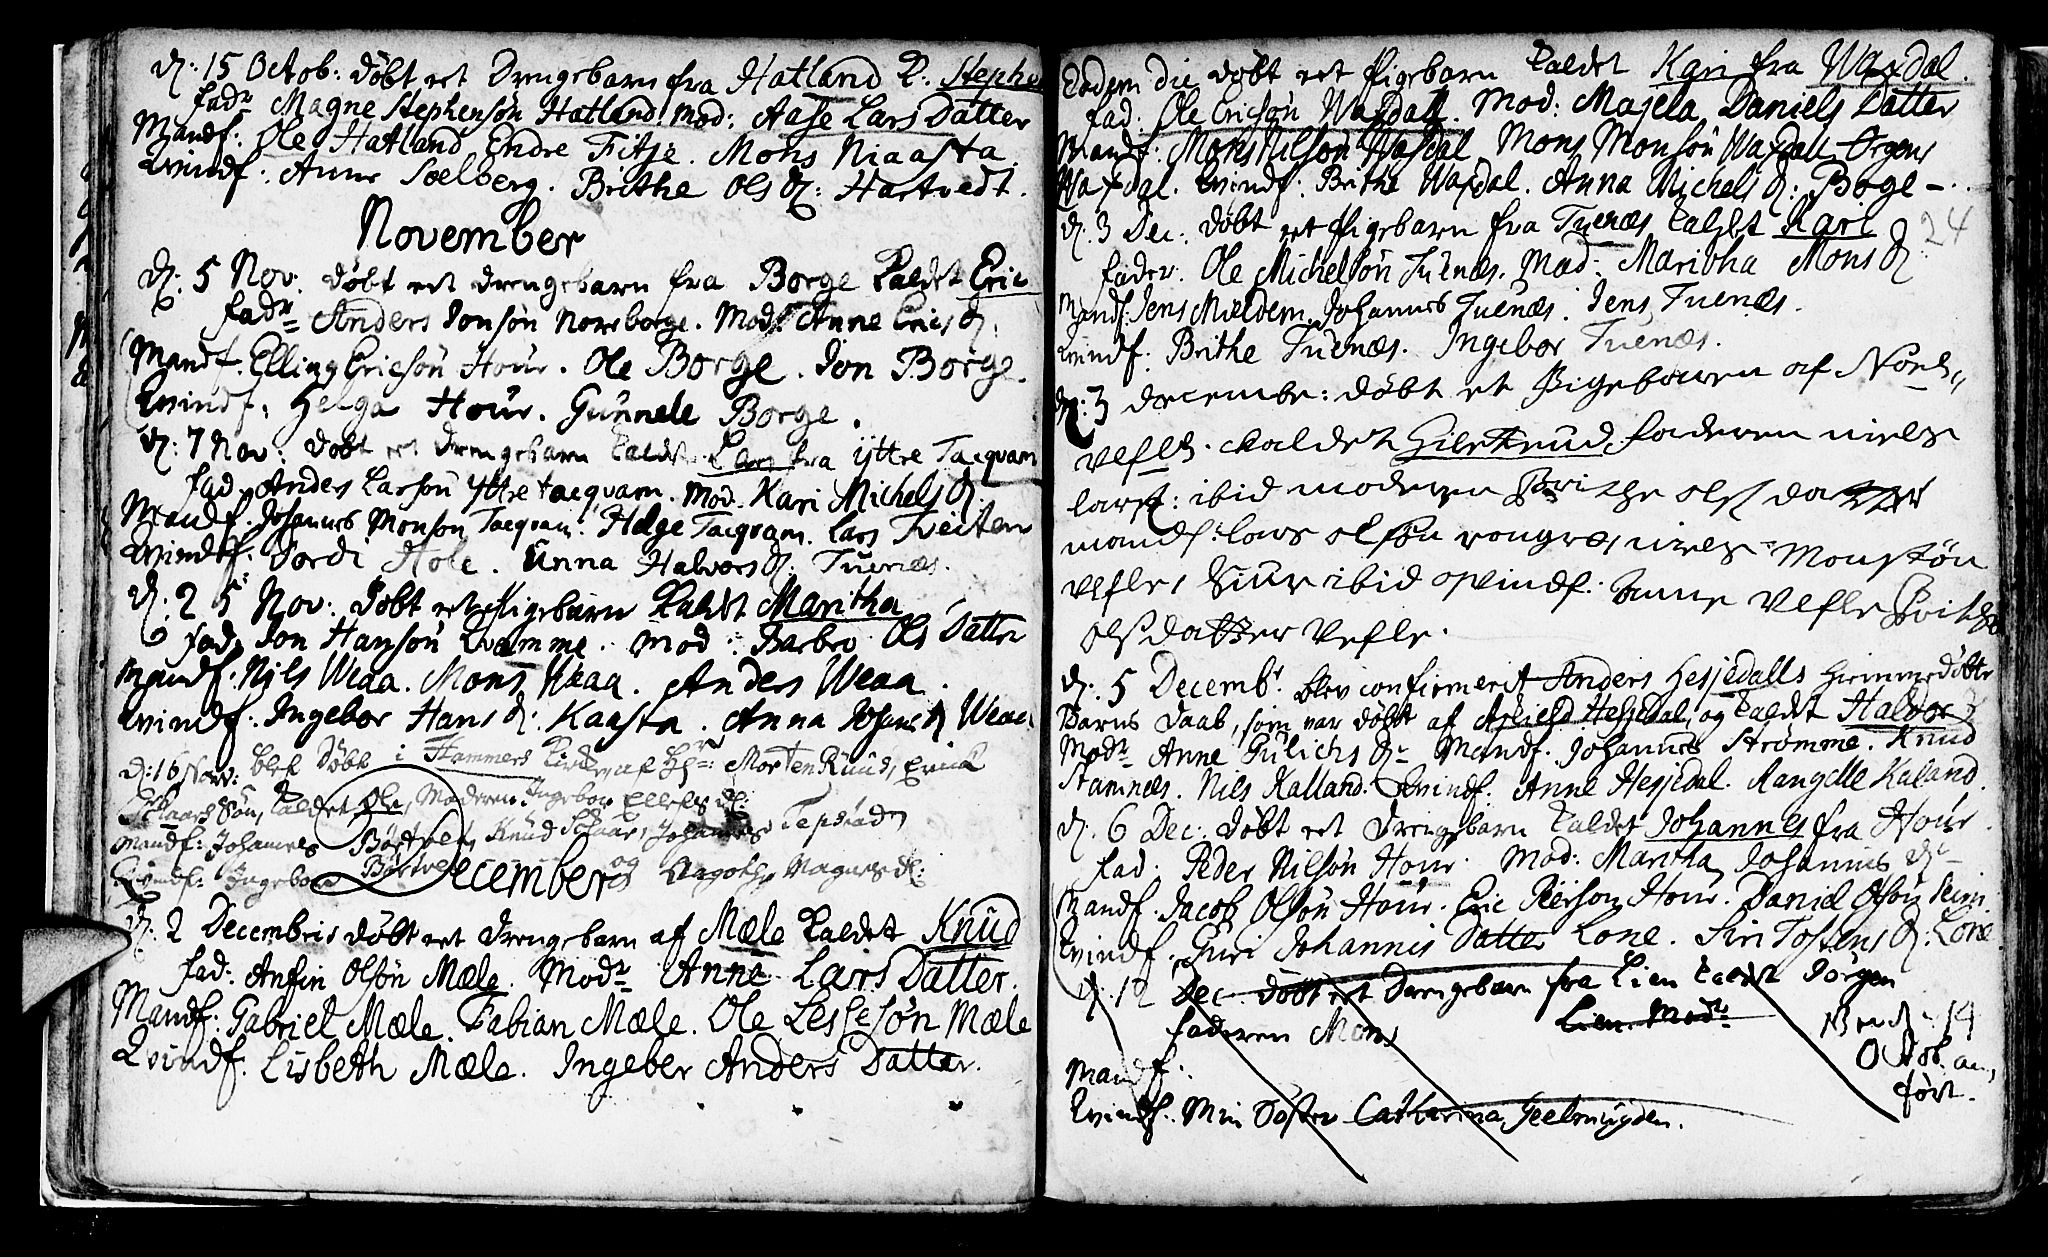 d: 15 Octob: døbt eet Drengebarn fra Hatland k. Stephe
fadr Magne Stephensøn Hatland. mod: Aase Lars Datter
Mandf: Ole Hatland Endre Fitje. Mons Niaasta.
Qvindf: Anne Soelberg. Brithe Ols d: Hartvedt.
November
d: 5 Nov: døbt eet drengebarn fra Borge kaldet Eric
fadr Anders Jonsøn Noreborge. Modr Anne Erics d:
Mandf. Elling Ericsøn Hour. Ole Borge. Jon Borge.
Qvindf: Helga Hour. Gunnele Borge.
d: 7 Nov: døbt eet drengebarn kaldet Lars fra ijttre Tacqvam
fad. Anders Larsøn yttre tacqvam. mod. Kari Michels d:
Mandf. Johannes Monsøn Tacqvam. Helge Tacqvam. Lars Tveiten
Qvindf: Jordi Hole. Anna Halvors d: Tuenæs.
d: 25 Nov: døbt eet Pigebarn kaldet Maritha
fad. Jon Hansøn Qvamme. mod: Barbro Ols Datter
Mandf: Nils Weaa. Mons Weaa. Anders Weaa.
Qvindf: Ingebor Hans d: Kaasta. Anna Johans d Weaa
d: 16 Nov: blef døbt i Hammers kirke af Hr: Morten Ruud, Erick
Skaars Søn, kaldet Ole, Moderen Ingebor Ellefs d:
Mandf: Johannes Børtvet, Knud Skaar, Johannes
Qvindf: Ingebor Børtvet og Magnes d:
December
d: 2 Decembris døbt eet drengebarn af Mæle kaldet Knud
fad: Anfin Olsøn Mæle. Modr Anna Lars Datter.
Mandf: Gabriel Mæle. Fabian Mæle. Ole Lessesøn Mæle
Qvindf: Lisbeth Mæle. Ingeber Anders Datter.
Eodem die døbt eet Pigebarn kaldet Kari fra Waxdal.
fad: Ole Ericsøn Waxdall. Mod: Majela Daniels Datter
Mandf: Mons Nilsøn Waxdal. Mons Monsøn Waxdall Ørgens
Waxdal. Qvindf. Brithe Waxdal. Anna Michels d: Borge -
24
d. 3 Dec: døbt eet Pigebarn fra Tuenæs kaldet Kari
fader. Ole Michelsøn Tuenæs. Mod: Maritha Mons d:
Mandf: Jens Mieldem. Johannes Tuenæs. Jens Tuenæs.
Qvindf. Brithe Tuenæs. Ingebor Tuenæs.
d: 3 decembr: døbt et Pigebaren af Nord
Vefle. kaldet Giertrud faderen niels
lars: ibid moderen Brithe ols datter
mandf: lars olsøn niels Monsøn
Vefle, Siur ibid qvindf. Anne Vefle Brithe
olsdatter Vefle.
d. 5 Decembr blev confirmerit Anders Hesjedalls hiemmedøbte
Barns daab, som var døbt af Hesjedal, og kaldet Haldor
Modr Anne Gulichs dr Mandf. Johannes Strømme. Knud
Stamnæs. Nils Kalland. Qvindf. Anne Hesjedal. Rangelle Kaland.
d. 6 Dec: døbt eet Drengebarn kaldet Johannes fra Hour.
fad. Peder Nilsøn Hour. Mod: Martha Johannes dr
Mandf. Jacob Olsøn Hour. Eric Hour. Daniel Olsøn Seim.
Qvindf. Guri Johannis Datter Lone. Siri Tostens d: Lone
d: 12 Dec døbt eet Drengebarn fra Lien kaldet Jørgen
faderen Mons Lien. Modr
NB er d: 14
Octob. an,
ført.
Mandf.
Qvindf. Min Søster Catharina Geelmuyden.